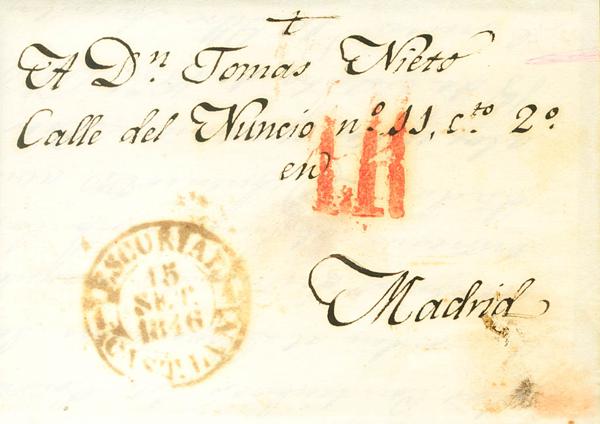 A Dn Tomas Nieto
Calle del Nuncio nº 11, cto 2º
en
Madrid
ESCORIAL
15
SET.
1846
CAST. LA N.